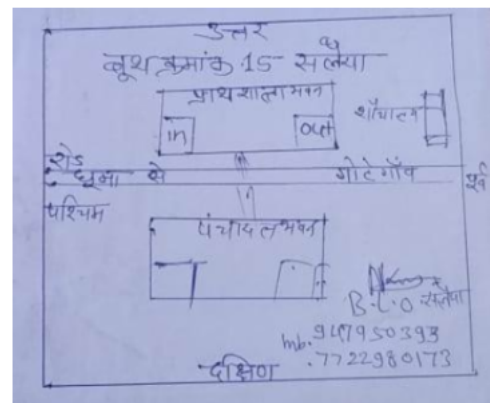 उत्तर
बूथ क्रमांक 15- सलैया
प्राथ शाला भवन
in
out
शौचालय
रोड
धूमा से
गोटेगाँव
पूर्व
पश्चिम
पंचायत भवन
B.L.O सलैया
mb.
7722980173
दक्षिण